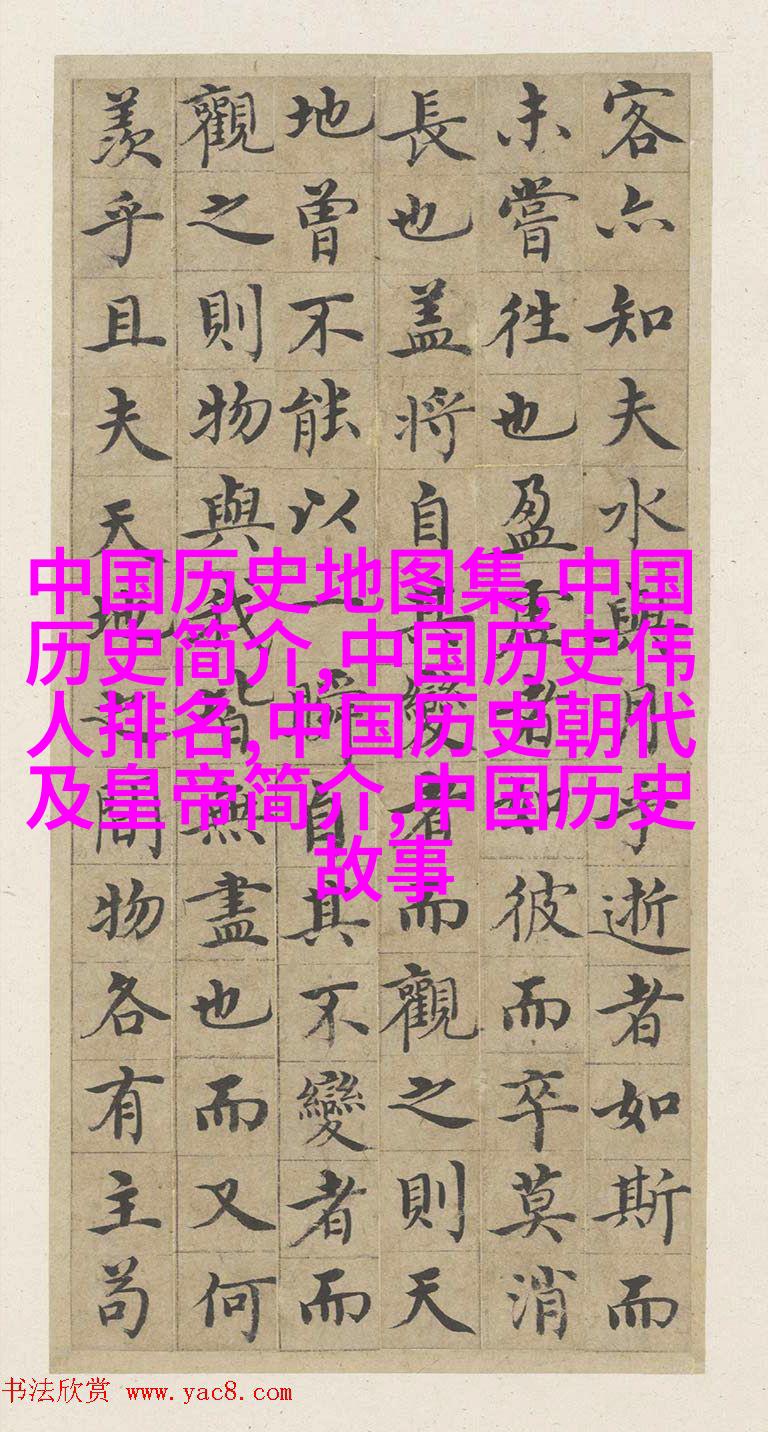 客亦知夫水與月乎逝者如斯而
未嘗徃也盈虛者如彼而卒莫消
長也盖將自其變者而觀之則天
地曾不能以一瞬自其不變者而
觀之則物與我皆無盡也而又何
羨乎且夫天地之間物各有主苟
中国历史地图集,中国
历史简介,中国历史伟
人排名,中国历史朝代
及皇帝简介,中国历史
故事
书法欣赏 www.yac8.com